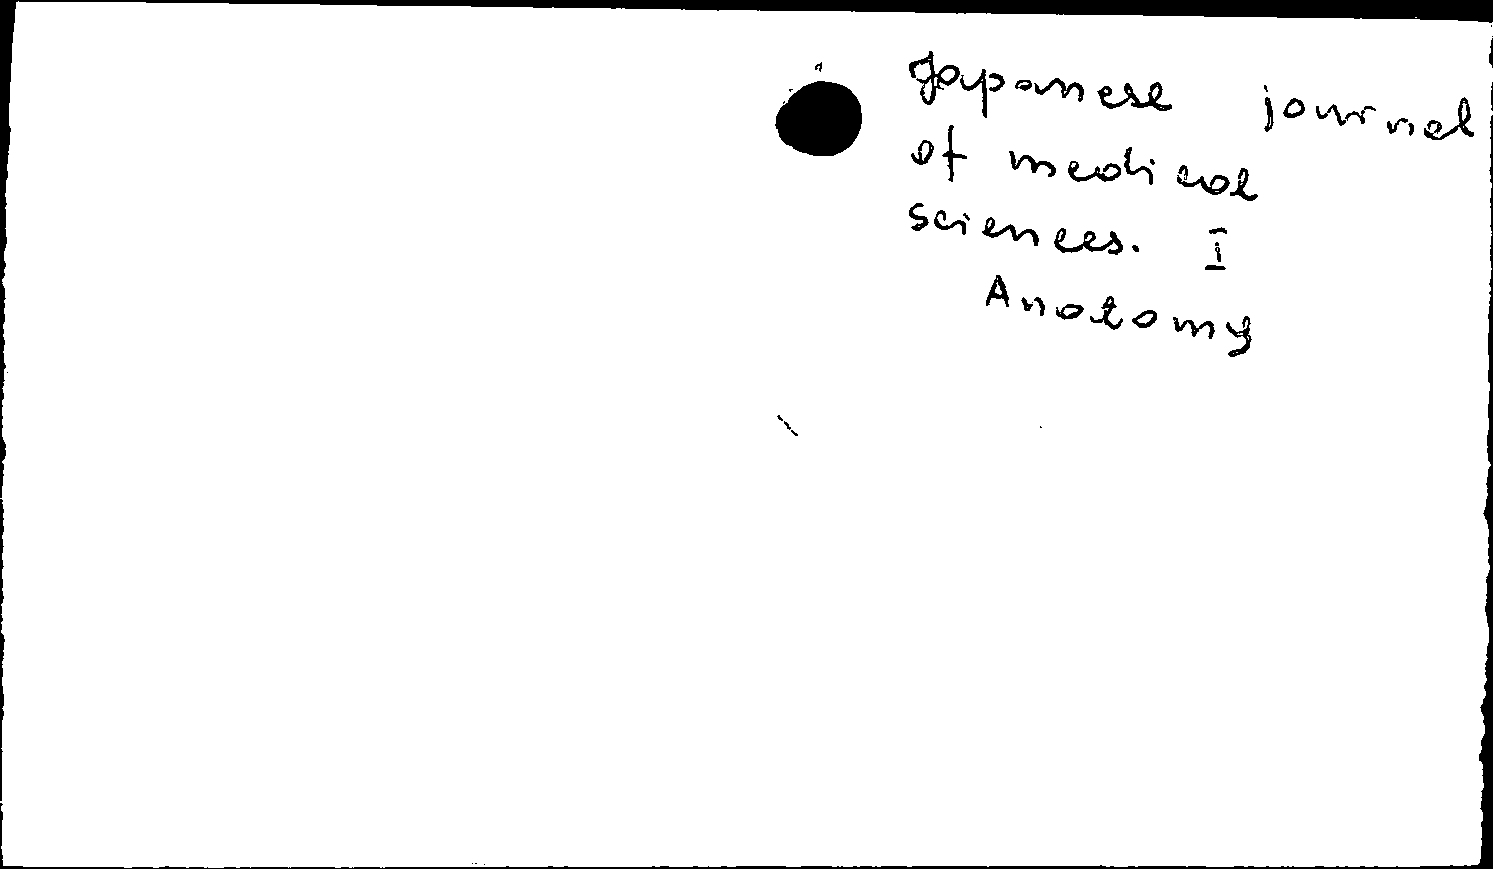 Japanese journal
of medical
sciences. I
Anatomy